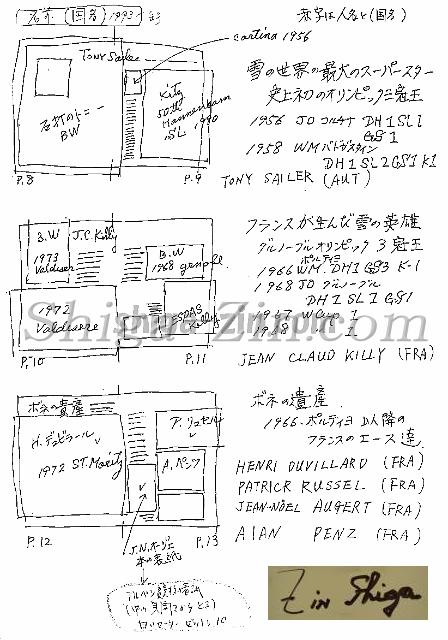 名前 (国名) 1993-
赤字は人名と(国名)
Cortina 1956
TONY Sailer
石打のトニー
BW
Kitz
50th
Hannenkam
SL 1990
P.8
P.9
雪の世界の最大のスーパースター
史上初のオリンピック三冠王
1956 JO コルチナ DH1 SL1
GS1
1958 WM バドガスタイン
DH1 SL2 GS1 K1
TONY SAILER (AUT)
B.W
1973
Valdiser
J.C.Killy
B.W
1968 grenoble
1972
Valdisere
Killy
P.10
P.11
フランスが生んだ雪の英雄
グルノーブルオリンピック 3冠王
ポルティヨ
1966 WM. DH1 GS3 K-1
1968 JO グルノーブル
DH1 SL1 GS1
1967 W Cup 1
1968 〃 1
JEAN CLAUD KILLY (FRA)
Shiga-Zin.com
ボネの遺産
H.デュビラール
1972 ST.Moritz
P.リュセル
A.ペンツ
P.12
P.13
J.N.オージェ
本の表紙
ボネの遺産
1966.ポルティヨ以降の
フランスのエース達
HENRI DUVILLARD (FRA)
PATRICK RUSSEL (FRA)
JEAN-NOËL AUGERT (FRA)
AlAN PENZ (FRA)
Z in Shiga